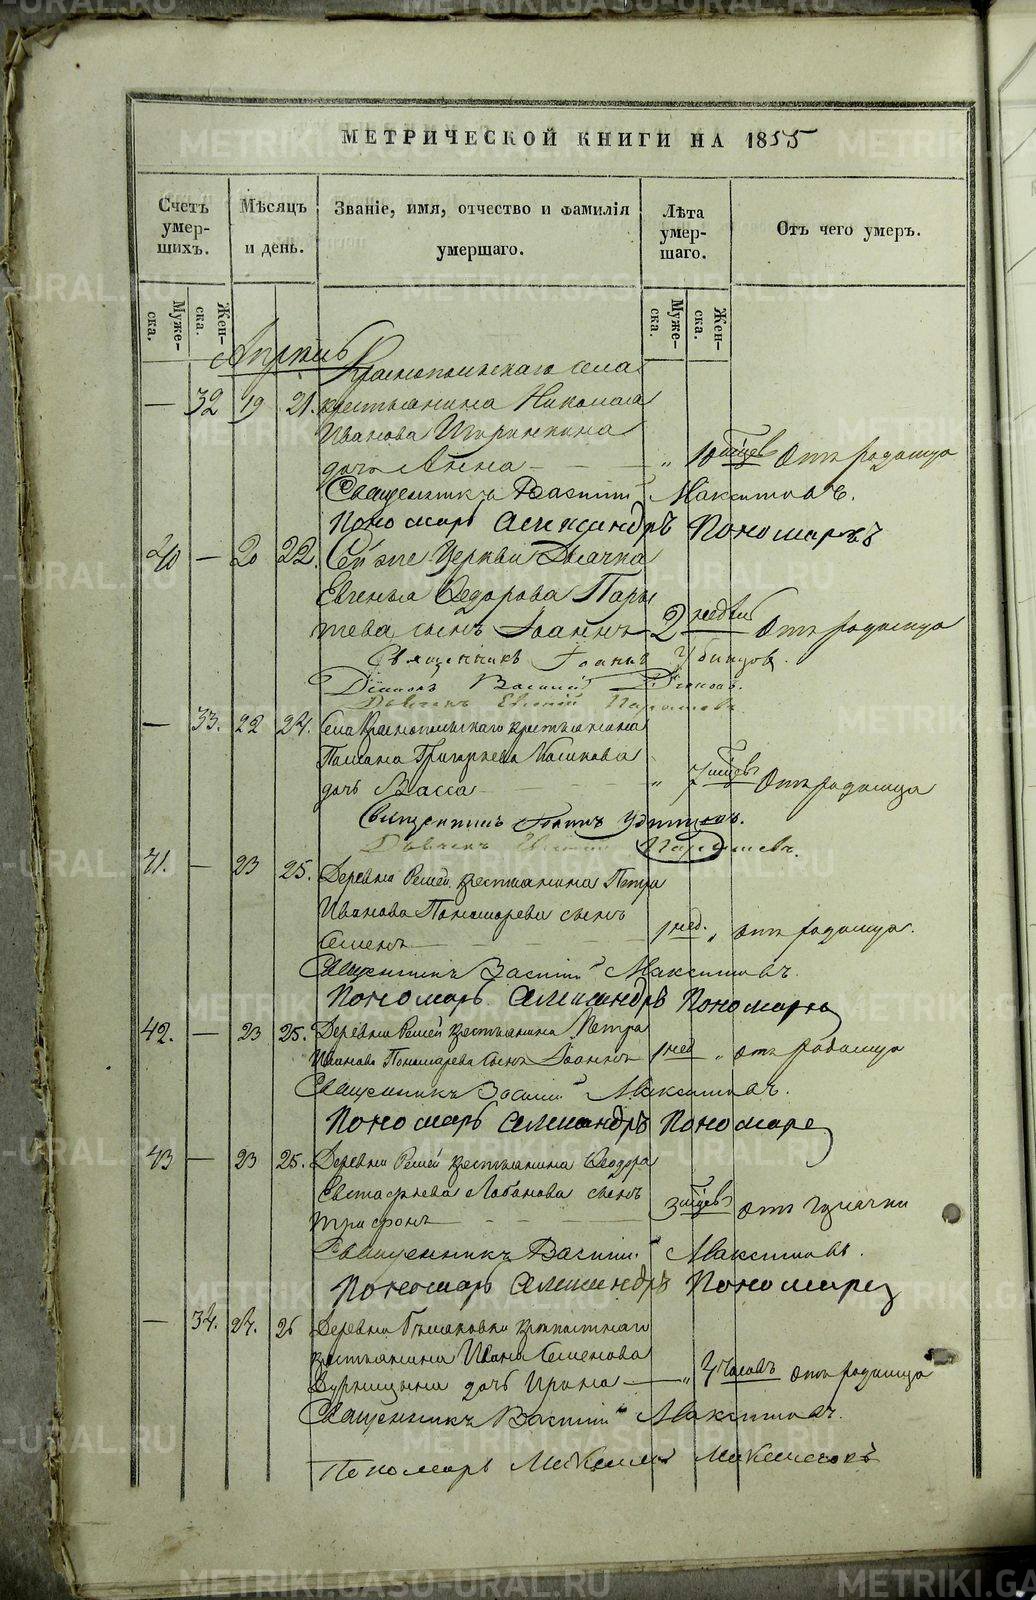 МЕТРИЧЕСКОЙ КНИГИ НА 1855
Счетъ умер-шихъ.
Мѣсяцъ и день.
Званіе, имя, отчество и фамилія умершаго.
Лѣта умер-шаго.
Отъ чего умеръ.
Муже-ска.
Жен-ска.
Муже-ска.
Жен-ска.
Апрѣль
Краснопольскаго села
— 32 19 21. крестьянина Николая
Иванова
дочь Анна — „ 10 мѣсяцев Отъ родимца
Священникъ Василій Максимовъ.
Пономарь Александръ Пономаревъ
40 — 20 22. Сей же Церкви Дьячка
Евгенья Федорова Пары
шева сынъ Іоаннъ 2 недѣли Отъ родимца
Священникъ Іоаннъ Удинцов.
Діаконъ Василій
Дьячекъ Евгеній Парышевъ
— 33. 22 24. Села Краснопольскаго крестьянина
Григорьева
дочь Васса „ 7 мѣсяцевъ Отъ родимца
Священникъ Іоаннъ Удинцовъ.
Дьячекъ Евгеній Парышевъ.
41. — 23 25. Деревни Решей крестьянина Петра
Иванова Пономарева сынъ
Семенъ 1 нед. „ отъ родимца.
Священникъ Василій Максимовъ.
Пономарь Александръ Пономаревъ
42. — 23 25. Деревни Решей крестьянина Петра
Иванова Пономарева сынъ Іоаннъ 1 нед „ отъ родимца
Священникъ Василій Максимовъ.
Пономарь Александръ Пономарев
43 — 23 25. Деревни Решей крестьянина Ѳеодора
Евстафьева Лобанова сынъ
Трифонъ 3 мѣсяцев отъ
Священникъ Василій Максимовъ.
Пономарь Александръ Пономарев
— 34. 24. 26 Деревни
крестьянина Ивана Семенова
дочь Ирина — „ 4 часовъ отъ родимца
Священникъ Василій Максимовъ.
Пономарь
METRIKI.GASO-URAL.RU